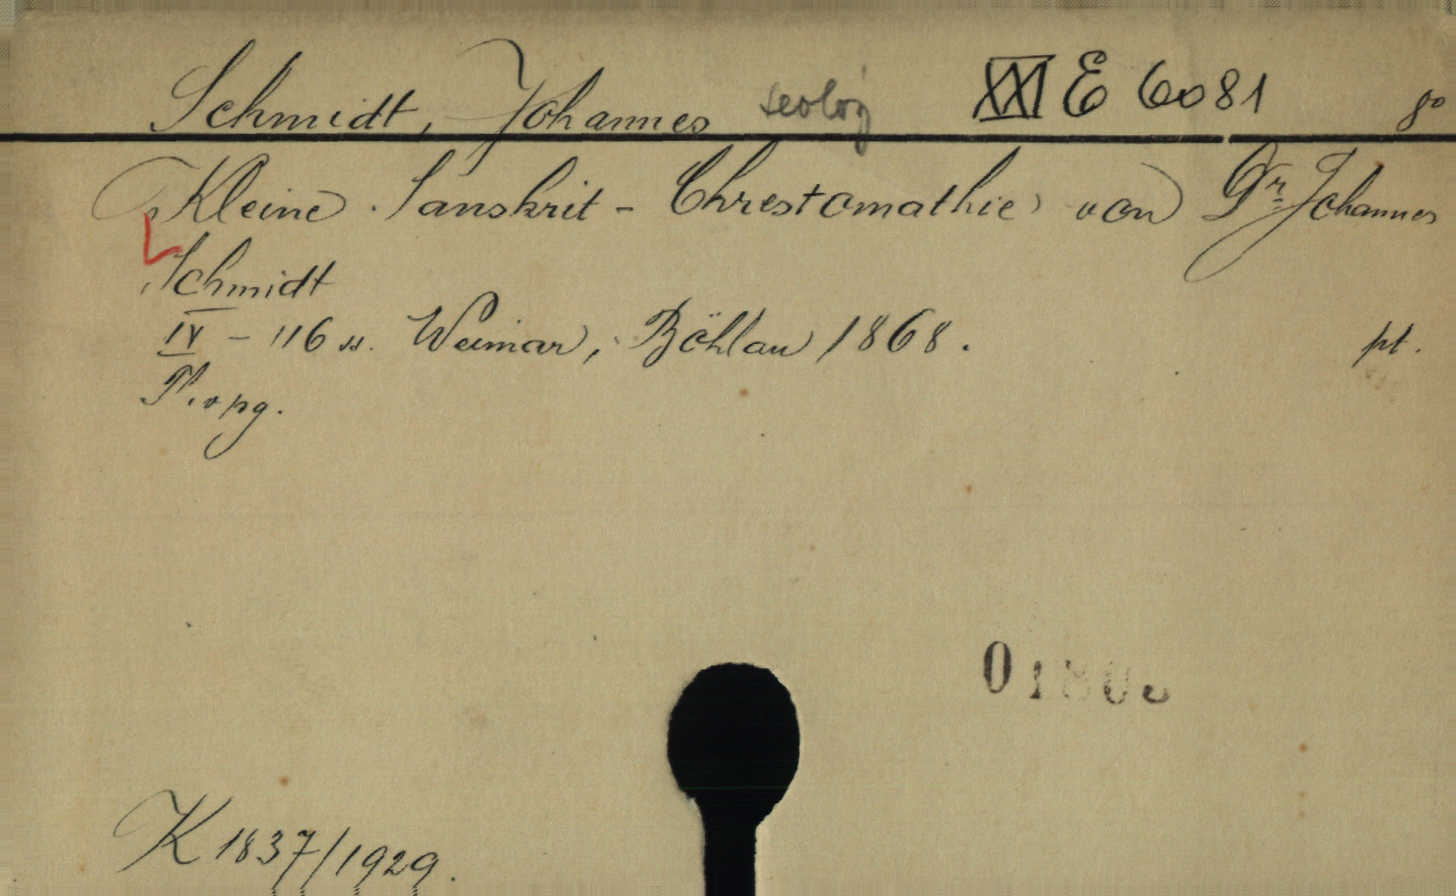 Schmidt, Johannes XXI E 6081 8°
Kleine Sanskrit - Chrestomathie von Dr. Johannes
Schmidt
IV - 116 s. Weimar, Böhlau 1868. pt.
K 1837/1929.